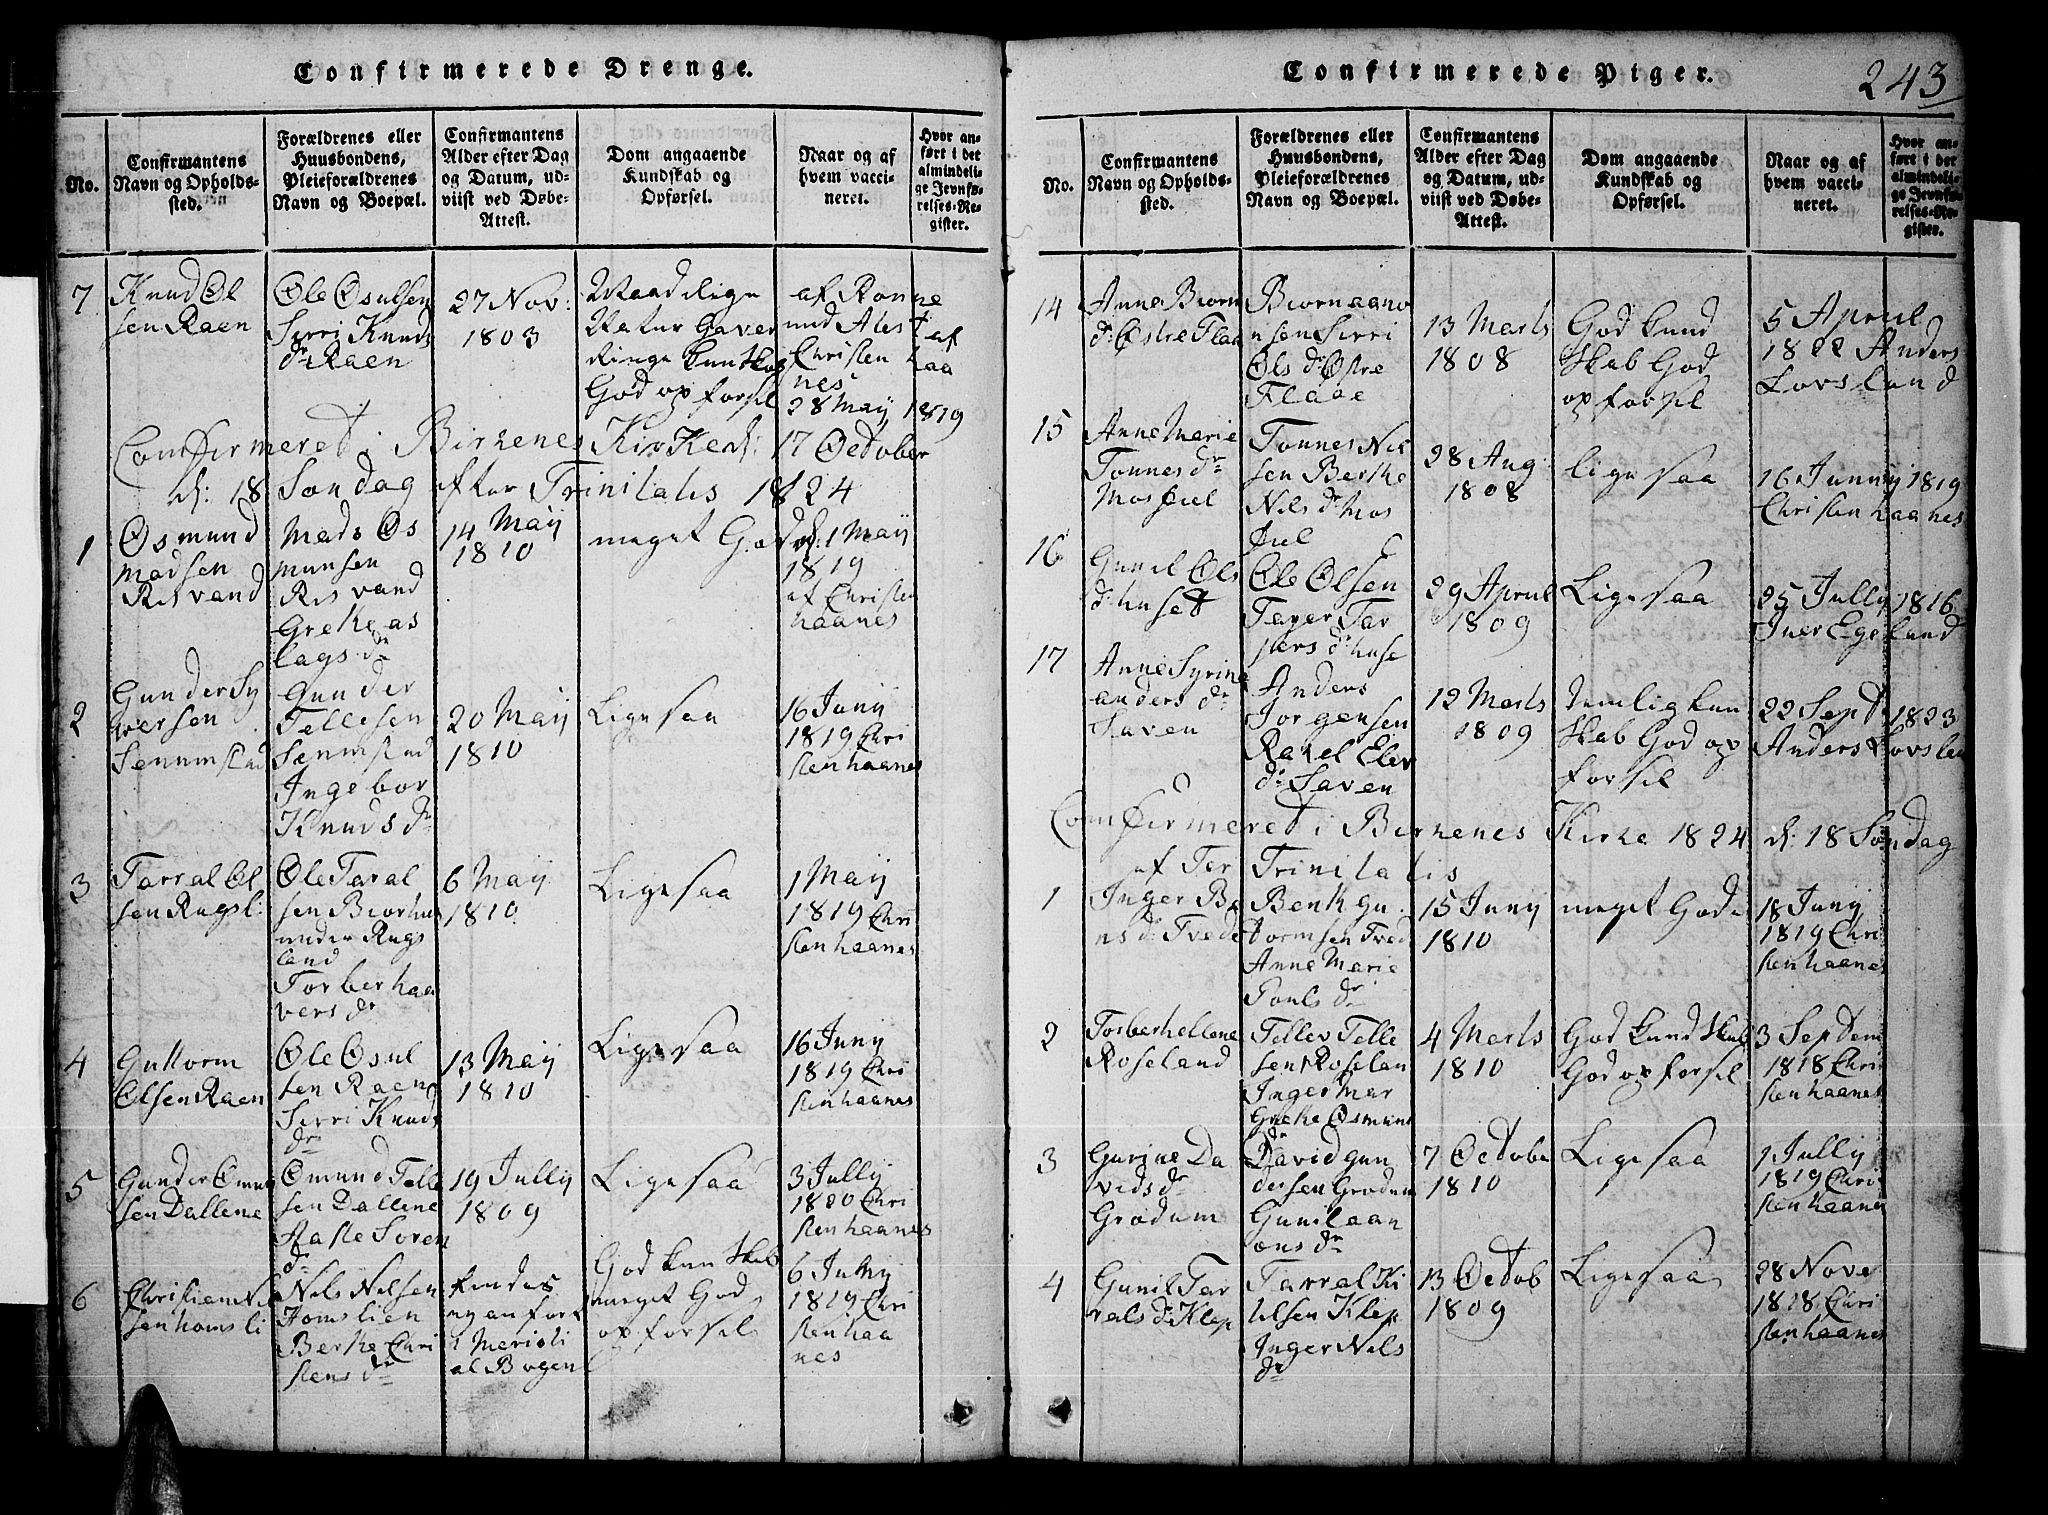 Confirmerede Drenge.
No.
Confirmantens Navn og Opholds-sted.
Forældrenes eller Huusbondens, Pleieforældrenes Navn og Boepæl.
Confirmantens Alder efter Dag og Datum, ud-viist ved Døbe-Attest.
Dom angaaende Kundskab og Opførsel.
Naar og af hvem vacci-neret.
Hvor an-ført i det almindeli-ge Jevnfø-relses-Re-gister.
7
Knud Ol
sen Raen
Ole Osulsen
Serri Knuds
dr Raen
27 Nov:
1803
Maadelige
Natur Gaver
Ringe kunskab
God opforsel
af
Christen haa
nes
28 Maij 1819
Comfirmeret i Birkenes Kirke d: 17 October
d: 18 Søndag efter Trinitatis 1824
1
Osmund
Madsen
Risvand
Mads Os
munsen
Risvand
Grethe as
lags dr
14 Maij
1810
meget God
d: 1 Maij
1819
af Christen
haanes
2
Gunder Sy
versen
Senumstad
Gunder
Tellesen
Senumstad
Ingebor
Knuds dr
20 Maij
1810
Ligesaa
16 Juny
1819 Chri
sten haanes
3
Tarral Ol
sen Rugsl:
Ole Taral
sen Biorhus
under Rugs
land
Torber haa
vers dr
6 Maij
1810
Ligesaa
1 Maij
1819 Chri
sten haanes
4
Guttorm
Olsen Raen
Ole Osul
sen Raen
Serri Knuds
dr
13 Maij
1810
Ligesaa
16 Juny
1819 Chri
sten haanes
5
Gunder Omun
sen Dallene
Omund Telle
sen Dallene
Aaste Soren
dr
19 Jully
1809
Ligesaa
3 Jully
1820 Chri
sten haanes
6
Christian Nil
sen homsli
Nils Nilsen
Jomslien
Berthe Chri
stens dr
findes
ey anfort
i Meristi
al Bogen
God kun skab
meget God
opforsel
6 Juny
1819 Chri
sten haa
nes
Confirmerede Piger.
243
No.
Confirmantens Navn og Opholds-sted.
Forældrenes eller Huusbondens, Pleieforældrenes Navn og Boepæl.
Confirmantens Alder efter Dag og Datum, ud-viist ved Døbe-Attest.
Dom angaaende Kundskab og Opførsel.
Naar og af hvem vacci-neret.
Hvor an-ført i det almindeli-ge Jevnfø-relses-Re-gister.
14
Anne Biorn
d: Østre Flaa
Biorn aano
nsen Serri
Ols dr Østre
Flaae
13 Marts
1808
God kund
skab God
opforsel
5 Apriil
1822 Anders
Lovsland
15
Anne Marie
Tonnes dr
Mosfiel
Tonnes Nil
sen Berthe
Nils dr Mos
fiel
28 Aug
1808
ligesaa
16 Junny 1819
Christen haanes
16
Gunil Ols
d: huset
Ole Olsen
Tar
jers d: huse
29 Apriil
1809
Ligesaa
25 Jully 1816
Iver Egeland
17
Anne Syrine
anders dr
Saven
Anders
Jorgensen
Rakel Elev
d: Saven
12 Marts
1809
Temlig kun
skab God op
forsel
22 Sept 1823
Anders Lovslan
Comfirmeret i Birkenes Kirke 1824 d: 18 Søndag
af Ter Trinitatis
1
Inger Be
ns d: Tvede
Benth gu
tormsen Tved
Anne Marie
Pouls dr
15 Juny
1810
meget Gode
18 Juny
1819 Chri
sten haanes
2
Torber hellene
Roseland
Tellev Telle
sen Roselan
Inger Mar
Grethe Osmuns
dr
4 Marts
1810
God kund skab
God opforsel
3 Septem
1818 Chri
sten haanes
3
Gurine Da
vids dr
Grodum
David gun
dersen Grodum
Gunil aan
ons dr
7 Octobe
1810
Ligesaa
1 Jully
1819 Chri
sten haanes
4
Gunil Tar
rals d: Klep
Tarral Ki
tilsen Klep
Inger Nils
dr
13 Octob
1809
Ligesaa
28 Nove
1818 Chri
sten haanes